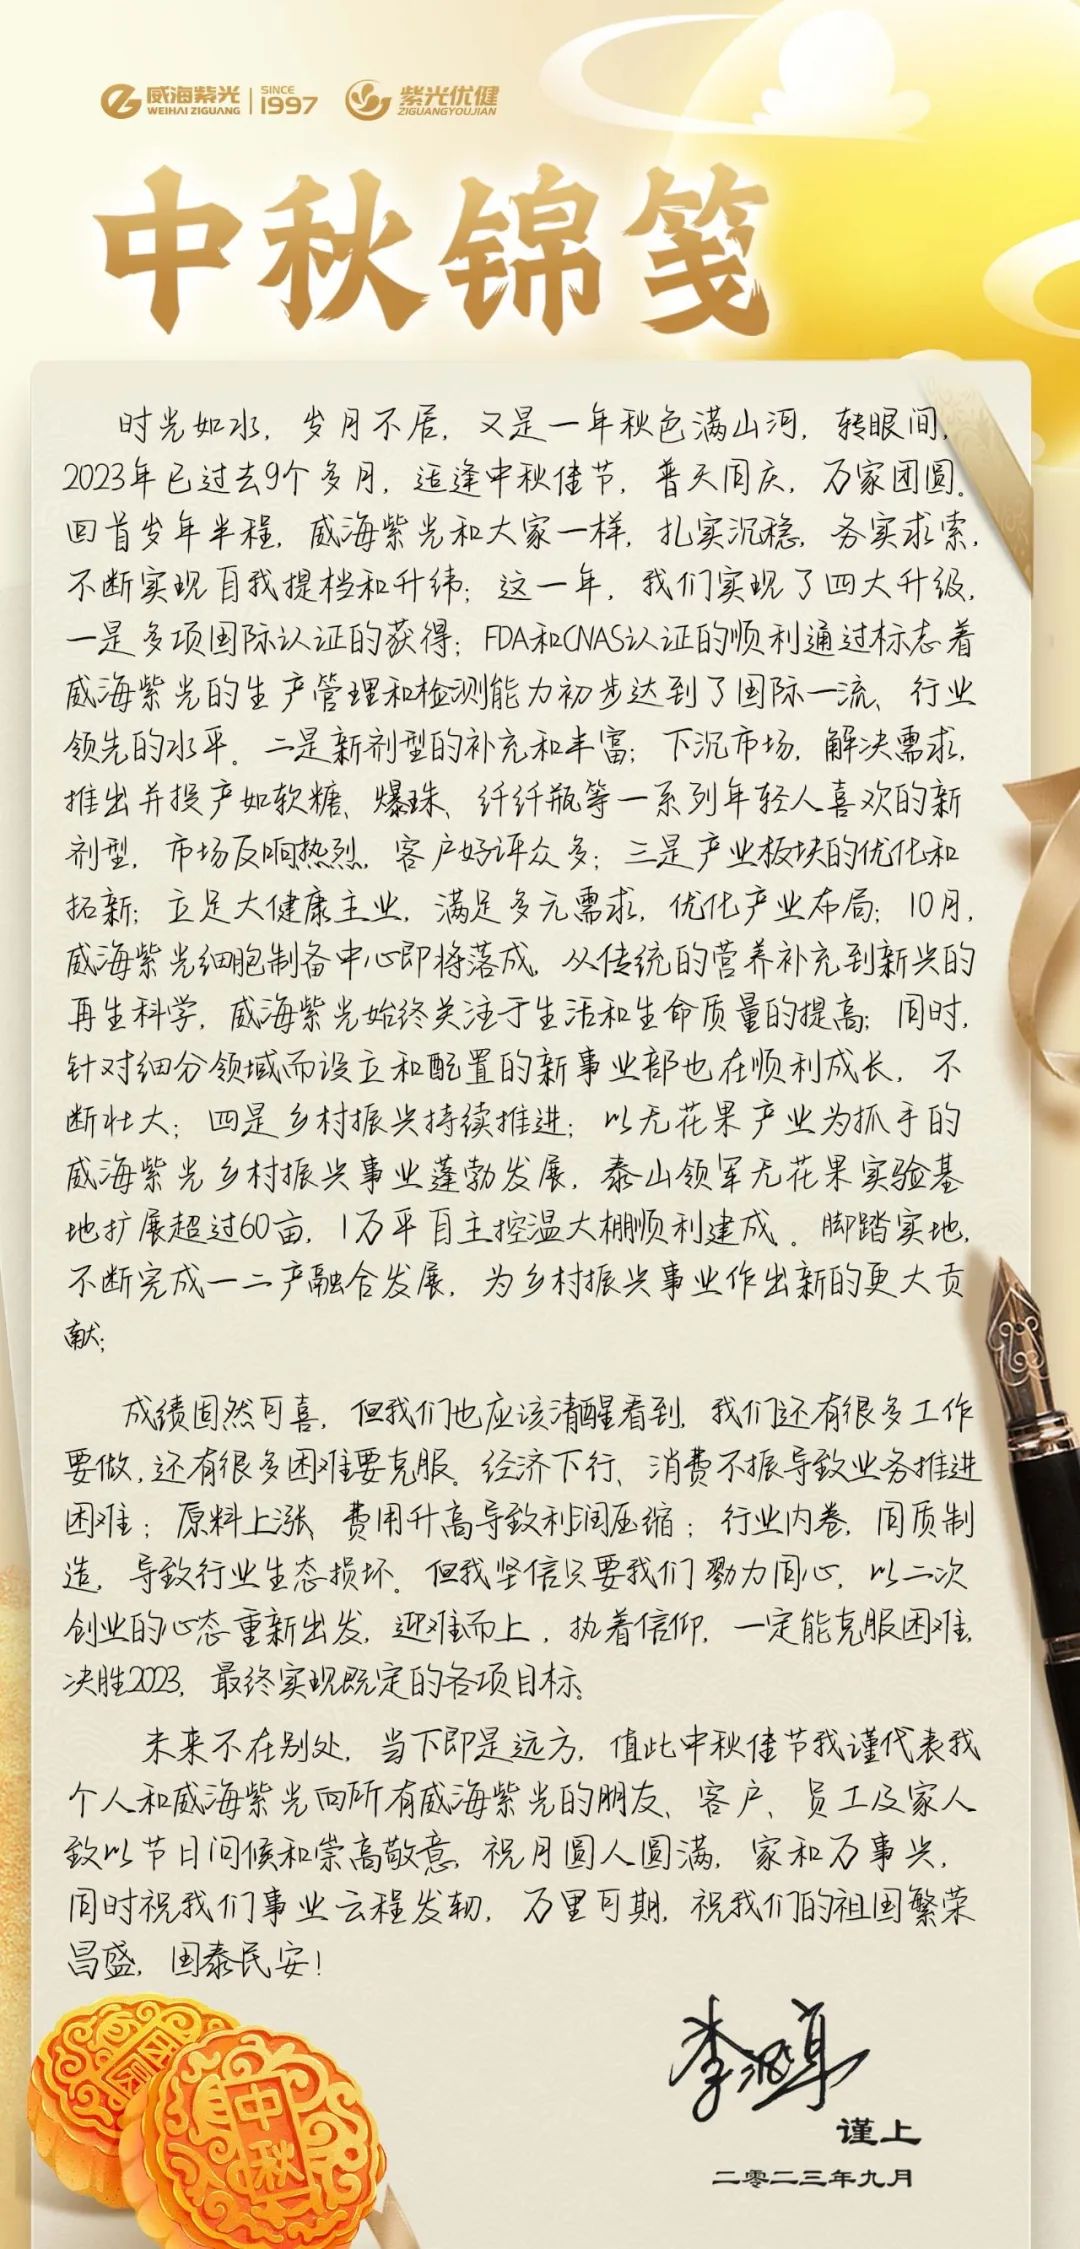 威海紫光 SINCE 紫光优健
WEIHAI ZIGUANG 1997 ZIGUANGYOUJIAN
中秋锦笺
时光如水，岁月不居，又是一年秋色满山河，转眼间，
2023年已过去9个多月，适逢中秋佳节，普天同庆，万家团圆。
回首岁年半程，威海紫光和大家一样，扎实沉稳，务实求索，
不断实现自我提档和升纬；这一年，我们实现了四大升级，
一是多项国际认证的获得；FDA和CNAS认证的顺利通过标志着
威海紫光的生产管理和检测能力初步达到了国际一流、行业
领先的水平。二是新剂型的补充和丰富；下沉市场，解决需求，
推出并投产如软糖、爆珠、纤纤瓶等一系列年轻人喜欢的新
剂型，市场反响热烈，客户好评众多；三是产业板块的优化和
拓新；立足大健康主业，满足多元需求，优化产业布局；10月，
威海紫光细胞制备中心即将落成。从传统的营养补充到新兴的
再生科学，威海紫光始终关注于生活和生命质量的提高；同时，
针对细分领域而设立和配置的新事业部也在顺利成长，不
断壮大；四是乡村振兴持续推进；以无花果产业为抓手的
威海紫光乡村振兴事业蓬勃发展，泰山领军无花果实验基
地扩展超过60亩，1万平自主控温大棚顺利建成。脚踏实地，
不断完成一二产融合发展，为乡村振兴事业作出新的更大贡
献；
成绩固然可喜，但我们也应该清醒看到，我们还有很多工作
要做，还有很多困难要克服。经济下行、消费不振导致业务推进
困难；原料上涨、费用升高导致利润压缩；行业内卷，同质制
造，导致行业生态损坏。但我坚信只要我们勠力同心，以二次
创业的心态重新出发，迎难而上，执着信仰，一定能克服困难，
决胜2023，最终实现既定的各项目标。
未来不在别处，当下即是远方，值此中秋佳节我谨代表我
个人和威海紫光向所有威海紫光的朋友、客户、员工及家人
致以节日问候和崇高敬意，祝月圆人圆满，家和万事兴，
同时祝我们事业云程发轫，万里可期，祝我们的祖国繁荣
昌盛，国泰民安！
中秋
谨上
二零二三年九月